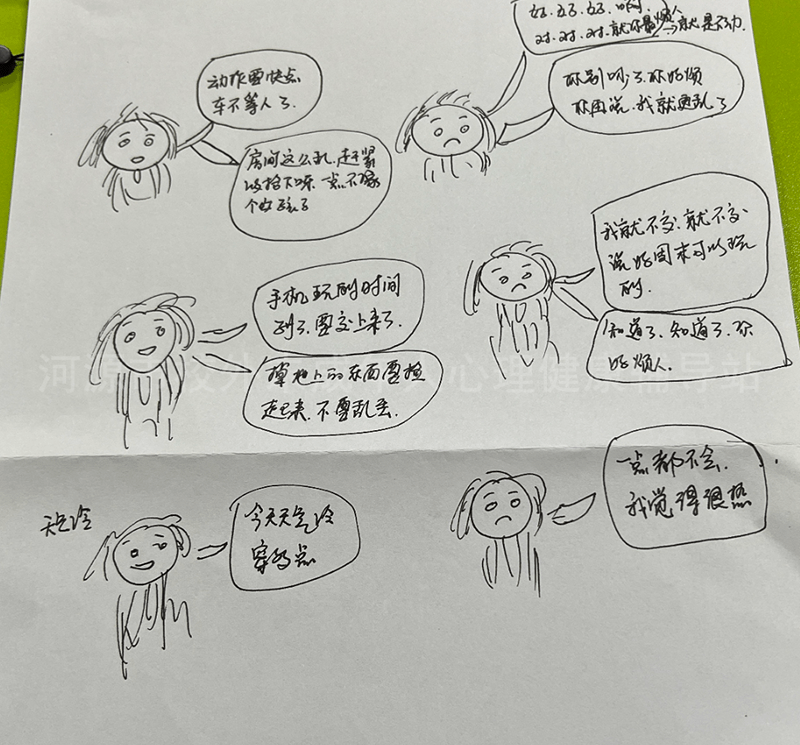 动作要快点
车不等人了.
房间这么乱.赶紧
收拾下呀 一点不像
个女孩子
好.好了.好.啊.
对.对.对.就你最烦人
你别叨了.你好烦
你再说.我就更乱了
手机玩的时间
到了.要交上来了.
掉地上的东西要捡
起来.不要乱丢.
我就不交.就不交
说好周末可以玩
的.
知道了.知道了.你
好烦人.
天气冷
今天天气冷
穿多点
一点都不会.
我觉得很热
河源
心理健康辅导站